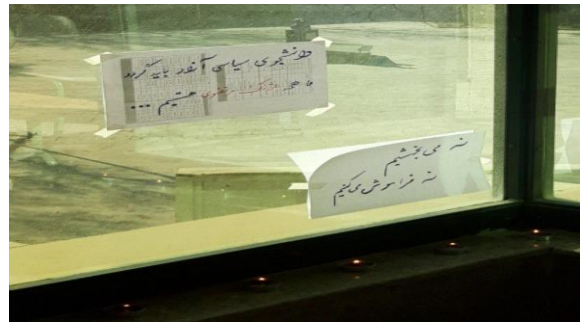 دانشجوی سیاسی آزاد باید گردد
ما همه هستیم ...
نه می بخشیم
نه فراموش می کنیم